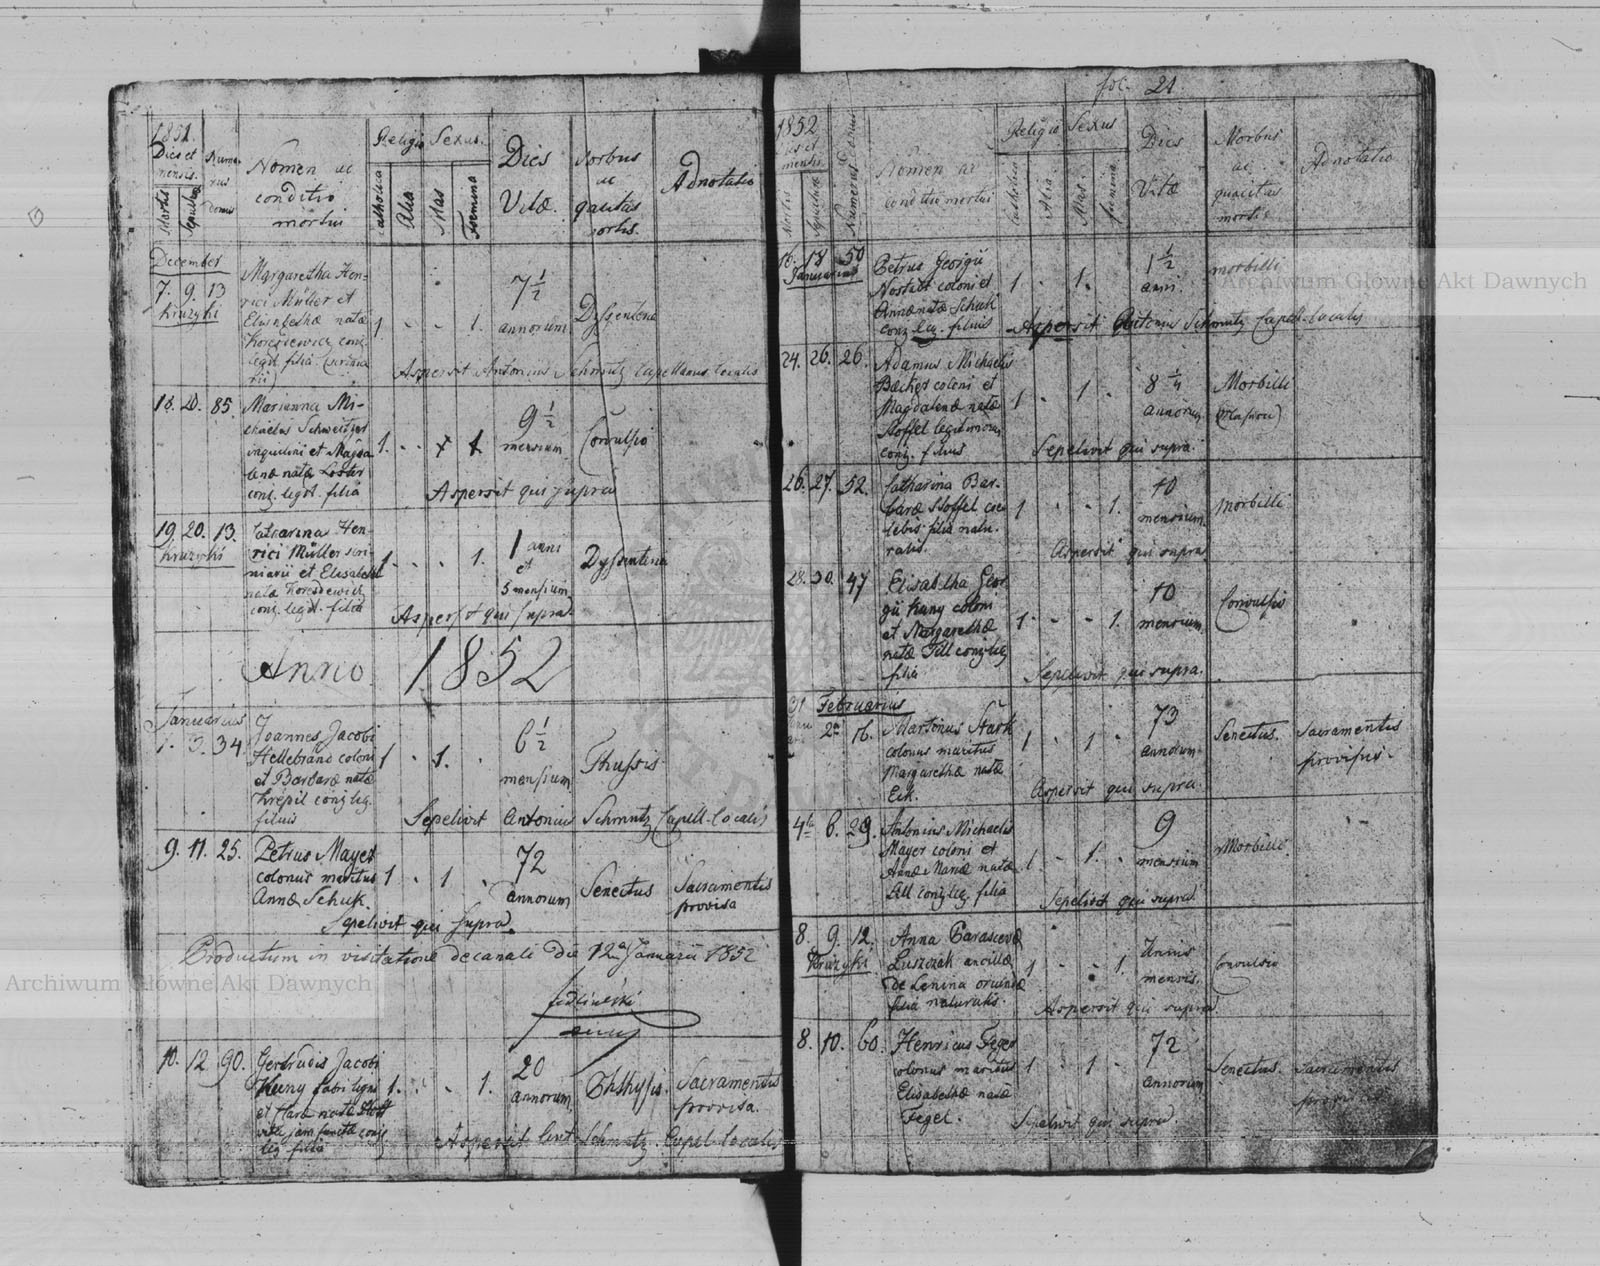 1851.
Dies et mensis.
Mortis
Sepulturæ
Numerus domus
Nomen ac
conditio
mortui
Religio
Catholica
Alia
Sexus.
Mas
Foemina
Dies
Vitæ.
Morbus
ac
qualitas
mortis.
Adnotatio
December
7. 9. 13
Kruzyki
Margaretha Hen-
rici Müller et
Elisabethæ natæ
conj.
legit. filia
1 - - 1.
7 1/2
annorum
Dyssenteria
Aspersit Antonius Schmutz Capellanus Localis
18. 20. 85.
Marianna Mi-
chaelis Schweitzer
inquilini et Magda
lenæ natæ
conj. legit. filia
1. - -
9 1/2
mensium
Convulsio
Aspersit qui supra
19. 20. 13.
Kruzyki
Catharina Hen-
rici Müller
et Elisabeth
natæ
conj. legit. filia
1 - - 1.
1 anni
et
5 mensium
Dyssenteria
Aspersit qui supra
Anno 1852
Januarius
1. 3. 34.
Joannes Jacobi
Hellebrand coloni
et Barbaræ natæ
Krepil conj. leg.
filius
1 - 1. -
6 1/2
mensium
Thussis
Sepelivit Antonius Schmutz Capell. Localis
9. 11. 25.
Petrus Mayer
colonus maritus
Annæ Schuk.
1 - 1 -
72
annorum
Senectus
Sacramentis
provisa
Sepelivit qui supra.
Productum in visitatione decanali die 12a Januarii 1852
10. 12 90.
Gertrudis Jacobi
Kuny fabri ligni
et natæ
conj.
leg filia
1. - - 1.
20
annorum.
Phthysis.
Sacramentis
provisa.
Aspersit Ant Schmutz Capel. Localis
fol. 21.
1852
Dies et
mensis
Mortis
Sepulturæ
Numerus Domus
Nomen ac
Conditio mortui
Religio
Catholica
Alia
Sexus
Mas
Femina
Dies
Vitæ
Morbus
ac
qualitas
mortis
Adnotatio
16. 18 50
Januarius
Petrus Georgii
coloni et
Annæ natæ Schuk
conj leg. filius
1 - 1. -
1 1/2
anni.
morbilli
Aspersit Antonius Schmutz Capel. Localis
24. 26. 26.
Adamus Michaelis
Becker coloni et
Magdalenæ natæ
Stoffel legitimorum
conj. filius
1 - 1 -
8 1/4
annorum
Morbilli
Sepelivit qui supra
26. 27. 52.
Catharina Bar-
baræ Stoffel cœ-
lebis filia natu-
ralis.
1 - - 1.
10
mensium
Morbilli
Aspersit qui supra
28. 30. 47
Elisabetha Geor
gii Kuny coloni
et Margarethæ
natæ Till conj. leg
filia
1 - - 1.
10
mensium
Convulsio
Sepelivit qui supra.
31 Februarius
2a 16.
Martinus Stark
colonus maritus
Margarethæ natæ
Eck.
1 - 1 -
73
annorum
Senectus.
Sacramentis
provisus.
Aspersit qui supra
4ta 6. 29.
Antonius Michaelis
Mayer coloni et
Annæ Mariæ natæ
conj leg filia
1 - 1. -
9
mensium
Morbilli.
Sepelivit qui supra
8. 9. 12.
Kruzyki
Anna Parascevæ
Luszczak ancillæ
de Lenina oriundæ
filia naturalis.
1 - - 1.
Unius
mensis.
Convulsio
Aspersit qui supra
8. 10. 60.
Henricus Feger
colonus maritus
Elisabethæ natæ
Fegel.
1 - 1 -
72
annorum
Senectus.
Sacramentis
Sepelivit qui supra.
Archiwum Główne Akt Dawnych
Archiwum Główne Akt Dawnych